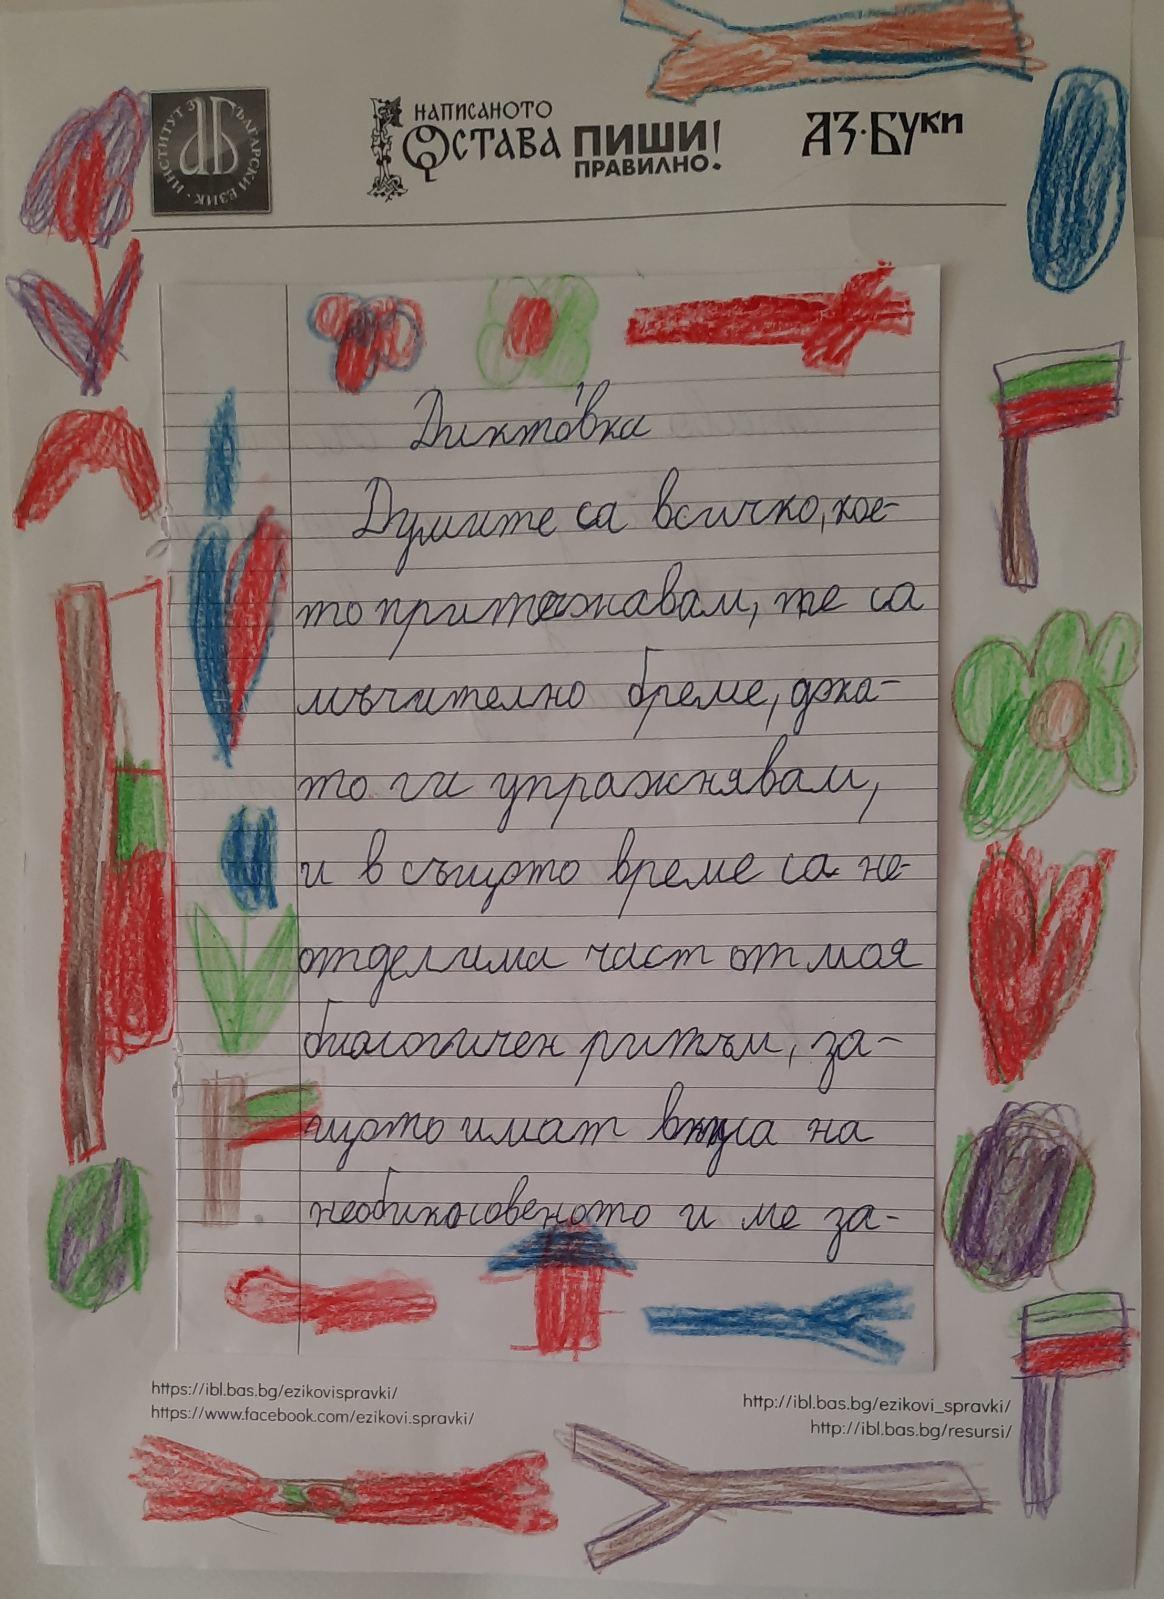 ИНСТИТУТ ЗА БЪЛГАРСКИ ЕЗИК
НАПИСАНОТО
ОСТАВА ПИШИ
ПРАВИЛНО!
АЗ·БУКИ
Диктовка
Думите са всичко, кое-
то притежавам, те са
мъчително бреме, дока-
то ги упражнявам,
и в същото време са не-
отделима част от моя
биологичен ритъм, за-
щото имат вкуса на
необикосовеното и ме за-
https://ibl.bas.bg/ezikovispravki/
https://www.facebook.com/ezikovi.spravki/
http://ibl.bas.bg/ezikovi_spravki/
http://ibl.bas.bg/resursi/